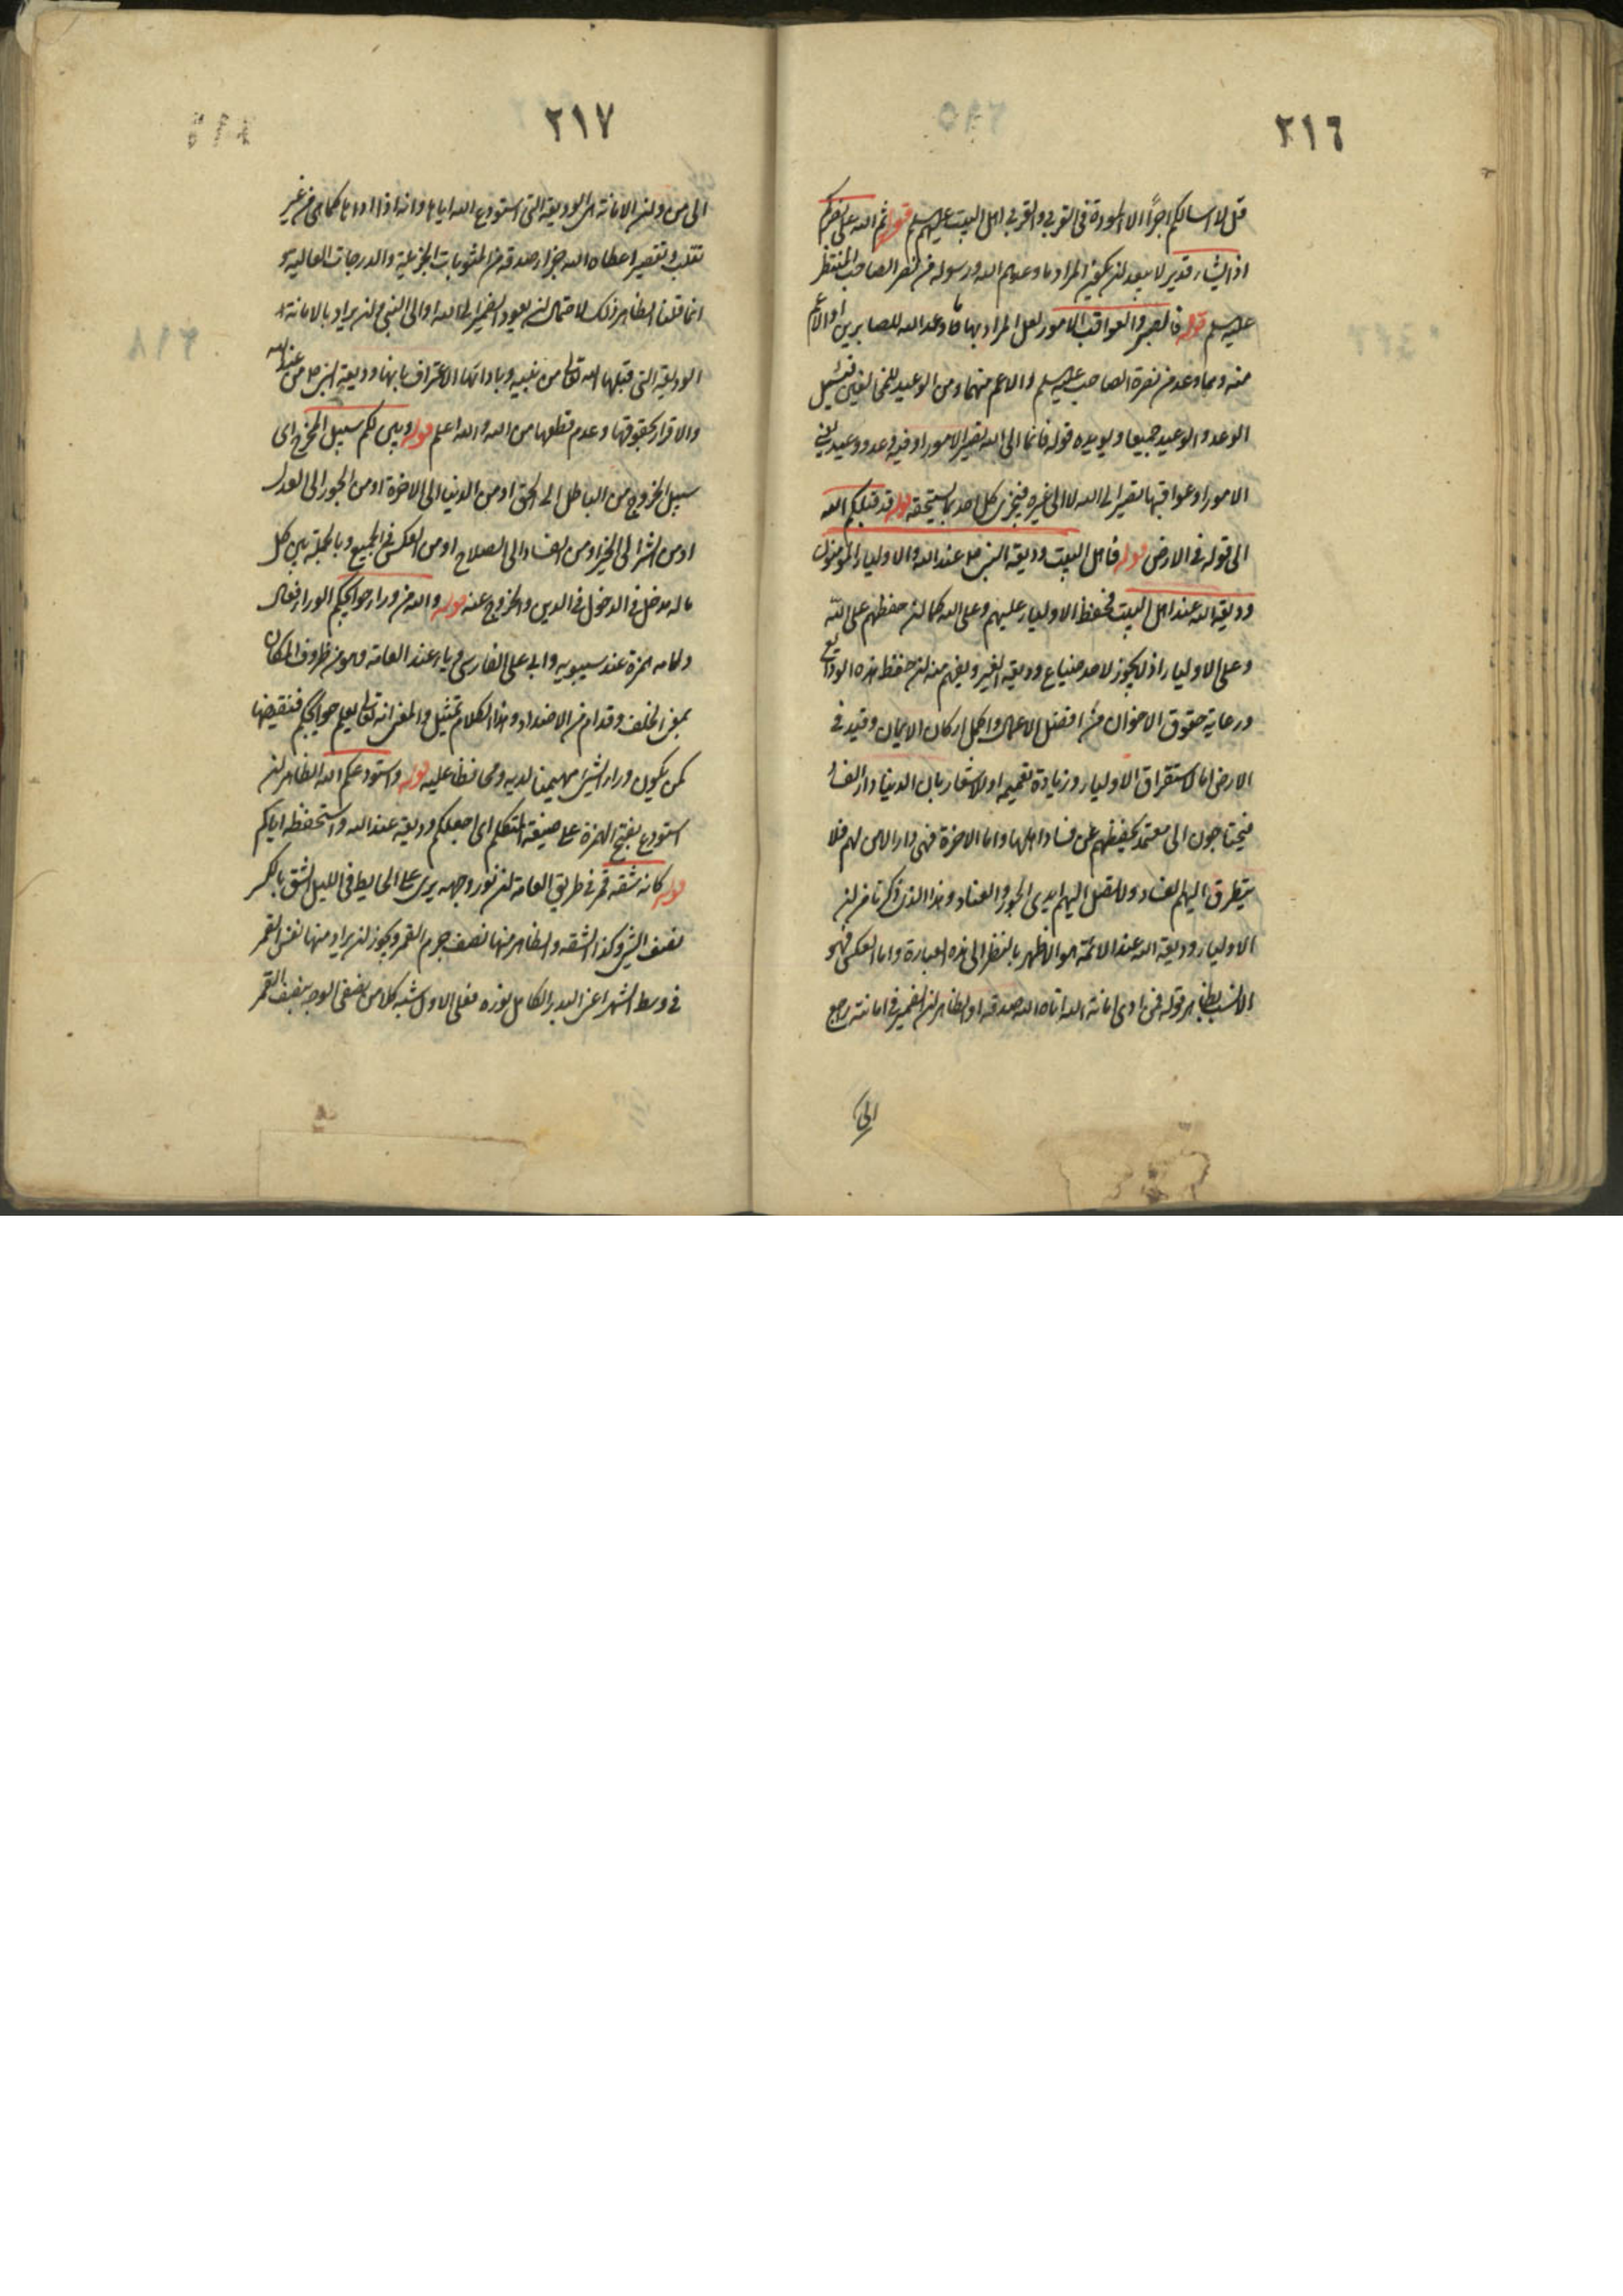 ٢١٦
قل لا اسالكم اجرًا الا المودة في القربى والقربى اهل البيت عليهم السلم قوله ثم الله على نصركم
اذا يشاء قدير لا يبعد ان يكون المراد ما وعدهم الله ورسوله من نصر الصاحب المنتظر
عليه السلم قوله فاصبروا لعواقب الامور لعل المراد بها ما وعد الله للصابرين او الاعم
منه ومما وعد من نصرة الصاحب عليه السلم والاعم منهما ومن الوعيد للمخالفين فيشمل
الوعد والوعيد جميعا ويؤيده قوله فانما الى الله تصير الامور اذ فيه وعد ووعيد لان
الامور او عواقبها تصير الى الله لا الى غيره فيجزى كل احد بما يستحقه قوله قد قبلكم الله
الى قوله في الارض قوله فاهل البيت وديعة النبي ص عند الله والاولياء المؤمنون
وديعة الله عند اهل البيت فحفظ الاولياء عليهم وعلى الله كما ان حفظهم على الله
وعلى الاولياء اذ لا يجوز لاحد ضياع وديعة الغير ويفهم منه ان حفظ هذه الودائع
ورعاية حقوق الاخوان من افضل الاعمال واكمل اركان الايمان وقيد في
الارض اما لاستغراق الاولياء وزيادة تعميمه او للاشعار بان الدنيا دار الفساد
فيحتاجون الى معتمد يحفظهم عن فساد اهلها واما الاخرة فهي دار الامن لهم فلا
يتطرق اليهم الفساد ولا تصل اليهم ايدى الجور والعناد وهذا الذى ذكرنا من ان
الاولياء وديعة الله عند الائمة هو الاظهر بالنظر الى هذه العبارة واما العكس فهو
الانسب بظاهر قوله فمن ادى امانة الله اتاه الله صدقه او الظاهر ان الضمير في امانته راجع
الى
٢١٧
الى من وان الامانة هى الوديعة التى استودع الله اياها وانه اذا اداها كما هى من غير
تقلب وتقصير اعطاه الله جزاء صدقه من المثوبات الجزيلة والدرجات العالية و
انما قلنا الظاهر ذلك لاحتمال ان يعود الضمير الى الله او الى النبي وان يراد بالامانة
الوديعة التى قبلها الله تعالى من نبيه وبادائها الاعتراف بانها وديعة النبي ص من عند الله
والاقرار بحقوقها وعدم قطعها من الله والله اعلم قوله وبين لكم سبيل المخرج اى
سبيل الخروج من الباطل الى الحق او من الدنيا الى الاخرة او من الجور الى العدل
او من الشر الى الخير او من الفساد الى الصلاح او من العكس في الجميع وبالجملة بين كل
ما له مدخل في الدخول في الدين والخروج عنه قوله والله من وراء حوائجكم الوراء فعال
ولامه همزة عند سيبويه وابي على الفارسى وياء عند العامة وهو من ظروف المكان
بمعنى خلف وقدام من الاضداد وهذا الكلام تمثيل والمعنى انه تعالى يعلم حوائجكم فيقضيها
كمن يكون وراء الشئ مهيمنا لديه ومحافظا عليه قوله واستودعكم الله الظاهر ان
استودع بفتح الهمزة على صيغة المتكلم اى اجعلكم وديعة عند الله واستحفظه اياكم
قوله كانه شقة قمر في طريق العامة ان نور وجهه يرى على الحايط في الليل الشق بالكسر
نصف الشئ وكذا الشقة والظاهر منها نصف جرم القمر ويجوز ان يراد منها نفس القمر
في وسط الشهر اعنى البدر الكامل نوره فعلى الاول شبه كلا من نصفى الوجه بنصف القمر